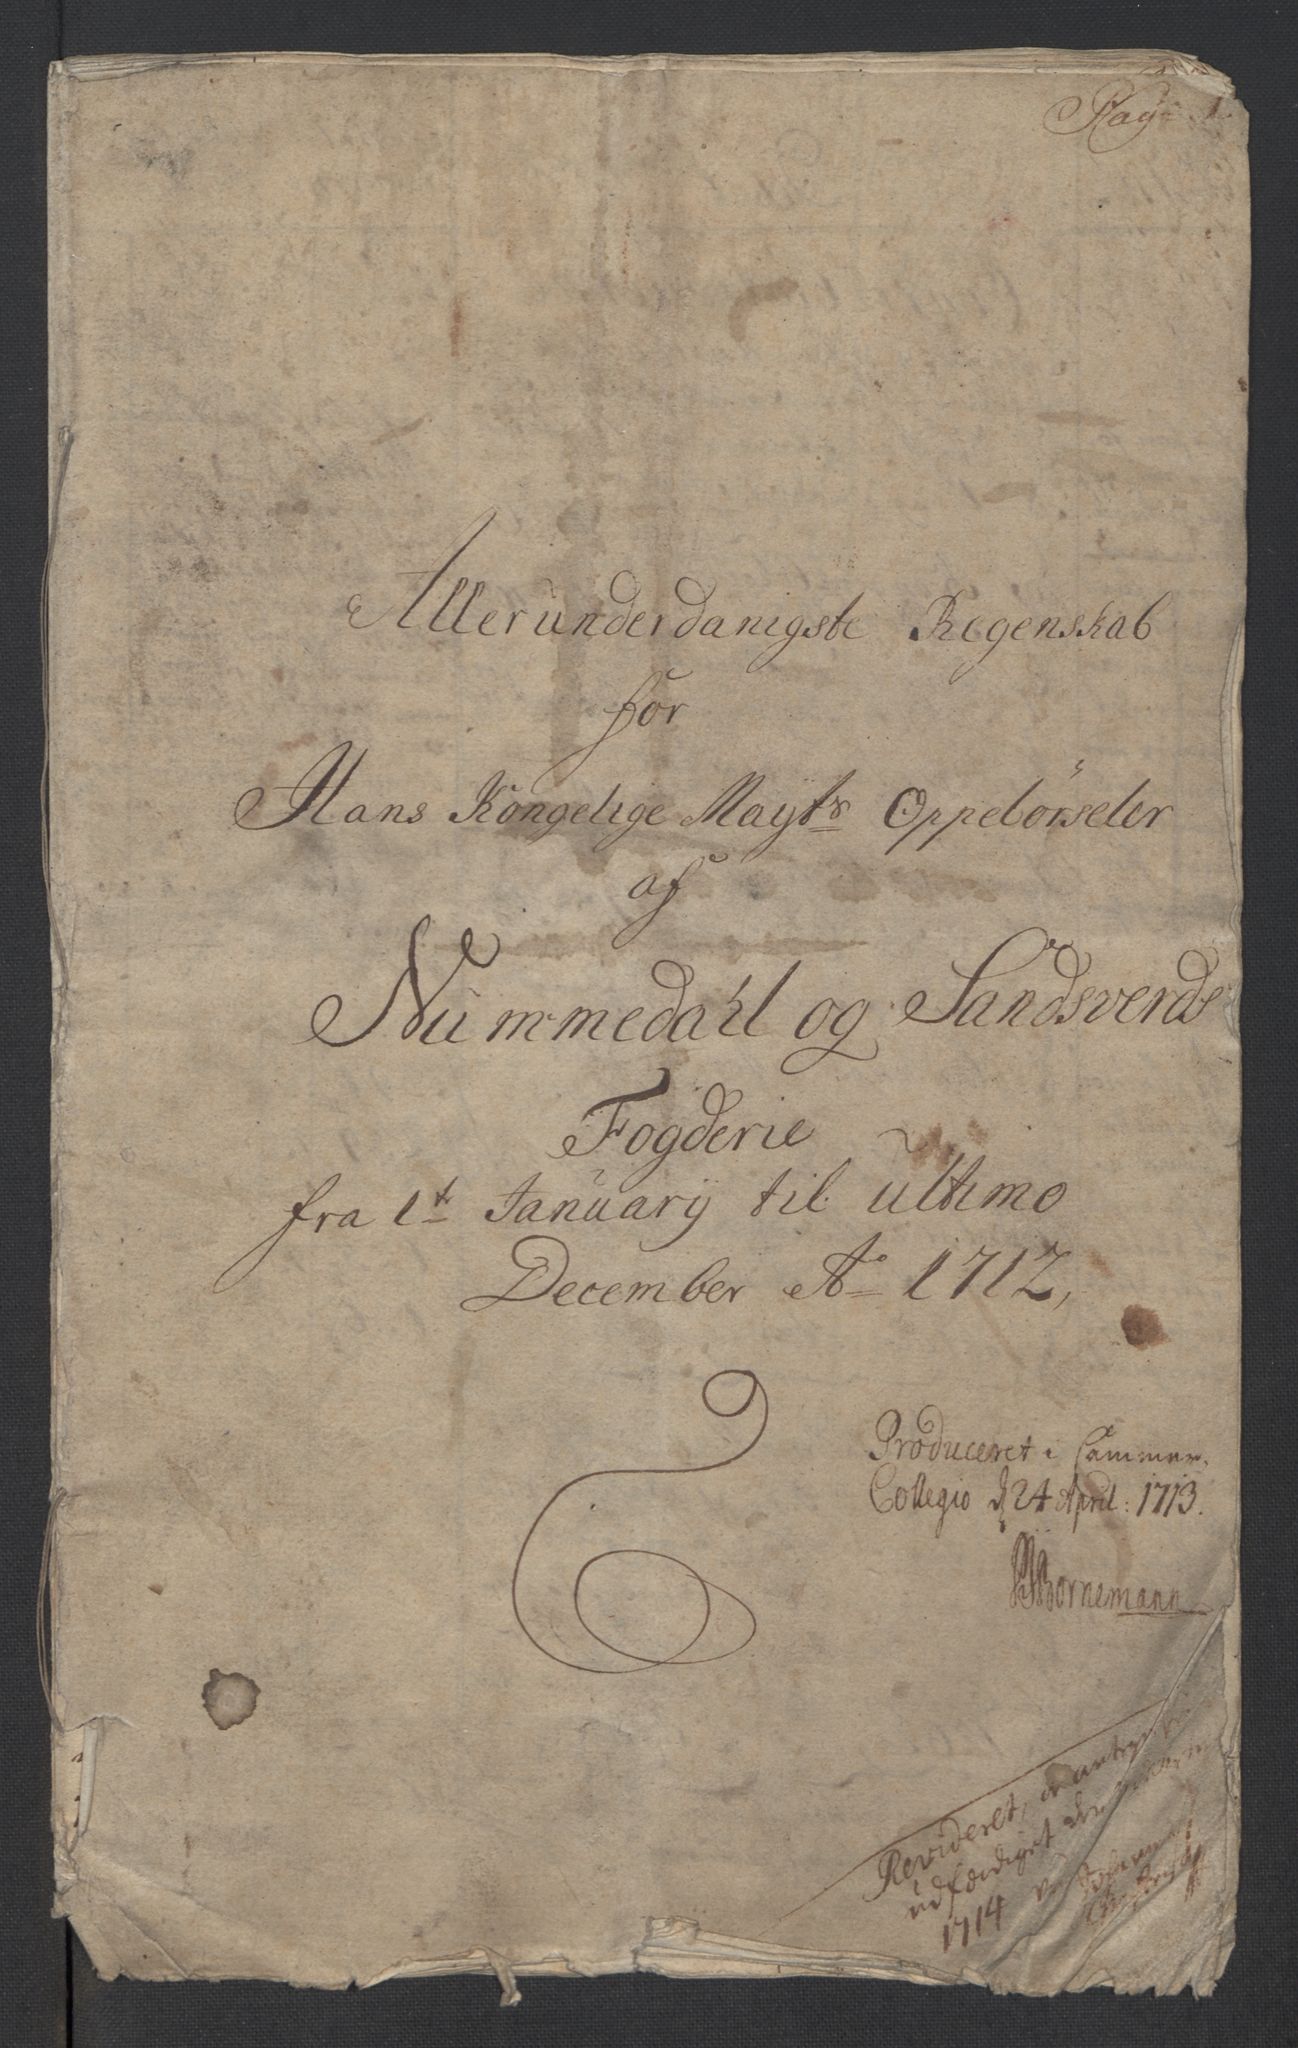 Pag: 1.
Allerunderdanigste Regenskab
for
Hans Kongelige Maytz Oppebörseler
af
Nummedahl og Sandsverds
Fogderie
fra 1t January til ultimo
December Ao 1712,
Produceret i Cammer
Collegio d 24 April: 1713.
Bornemann
Revideret,
udfærdiget
1714